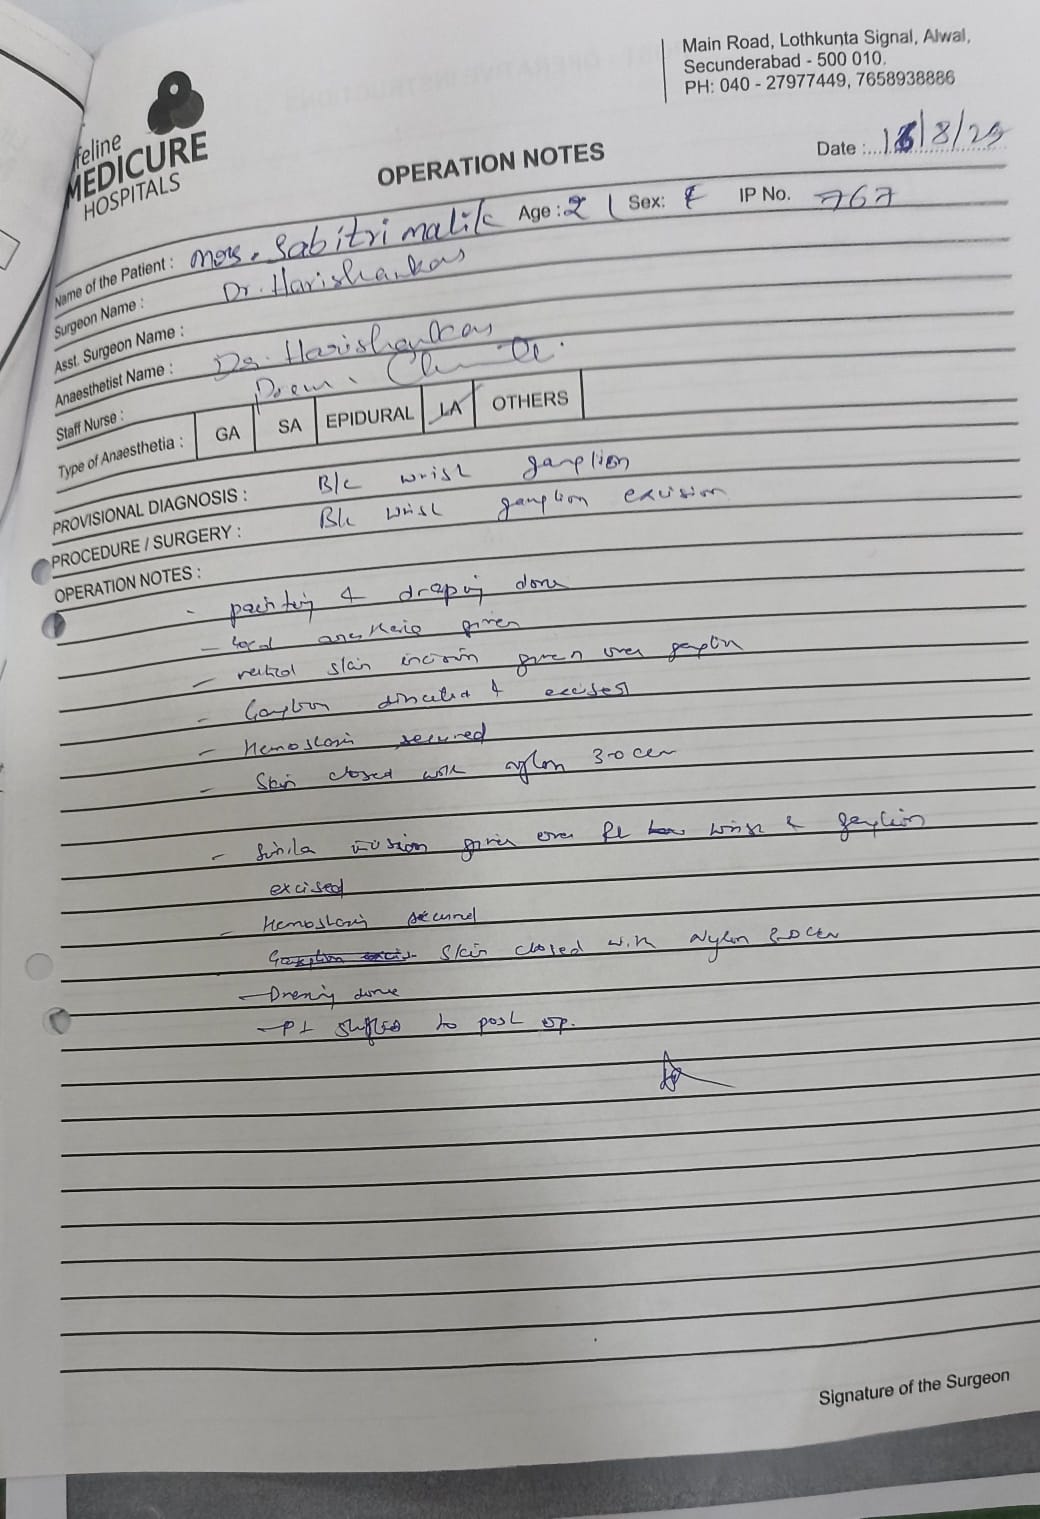 Main Road, Lothkunta Signal, Alwal,
Secunderabad - 500 010.
PH: 040 - 27977449, 7658938886
feline
MEDICURE
HOSPITALS
OPERATION NOTES
Date : 16/8/25
Name of the Patient : Mrs. Sabitri malik Age : 21 Sex: F IP No. 767
Surgeon Name : Dr. Harishankar
Asst. Surgeon Name :
Anaesthetist Name : Dr. Harishankar
Staff Nurse : Prem.
Type of Anaesthetia : GA SA EPIDURAL LA OTHERS
PROVISIONAL DIAGNOSIS : B/L wrist ganglion
PROCEDURE / SURGERY : B/L wrist ganglion excision
OPERATION NOTES :
- painting & draping done
- local anesthesia given
- vertical skin incision given over ganglion
- Ganglion dissected & excised
- Hemostasis secured
- Skin closed with nylon 3-0
- Similar incision given over Rt wrist & ganglion
excised
- Hemostasis secured
Skin closed with nylon
- Dressing done
- Pt shifted to post op.
Signature of the Surgeon